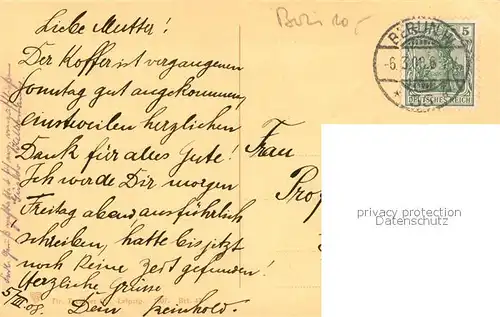 Liebe Mutter!
Der Koffer ist vergangenen
Sonntag gut angekommen,
einstweilen herzlichen
Dank für alles Gute!
Ich werde Dir morgen
Freitag abend ausführlich
schreiben, hatte bis jetzt
noch keine Zeit gefunden!
Herzliche Grüsse
5/III.08. Dein Reinhold.
10,-
BERLIN W
5
DEUTSCHES REICH
Frau
Prof
privacy protection
Datenschutz
Leipzig